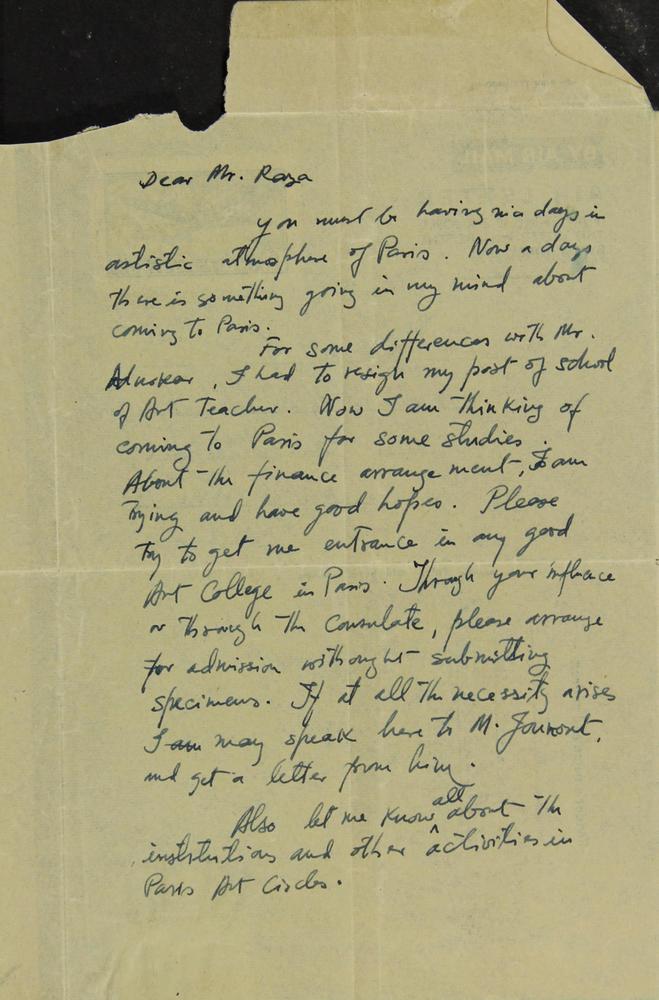 Dear Mr. Raza
you must be having nice days in
artistic atmosphere of Paris. Now a days
there is something going in my mind about
coming to Paris.
For some differences with Mr.
, I had to resign my post of school
of Art Teacher. Now I am thinking of
coming to Paris for some studies.
About the finance arrangement, I am
trying and have good hopes. Please
try to get me entrance in any good
Art College in Paris. Through your influence
or through the Consulate, please arrange
for admission without submitting
specimens. If at all the necessity arises
I am may speak here to M.
and get a letter from him.
Also let me know all about the
institutions and other activities in
Paris Art Circles.